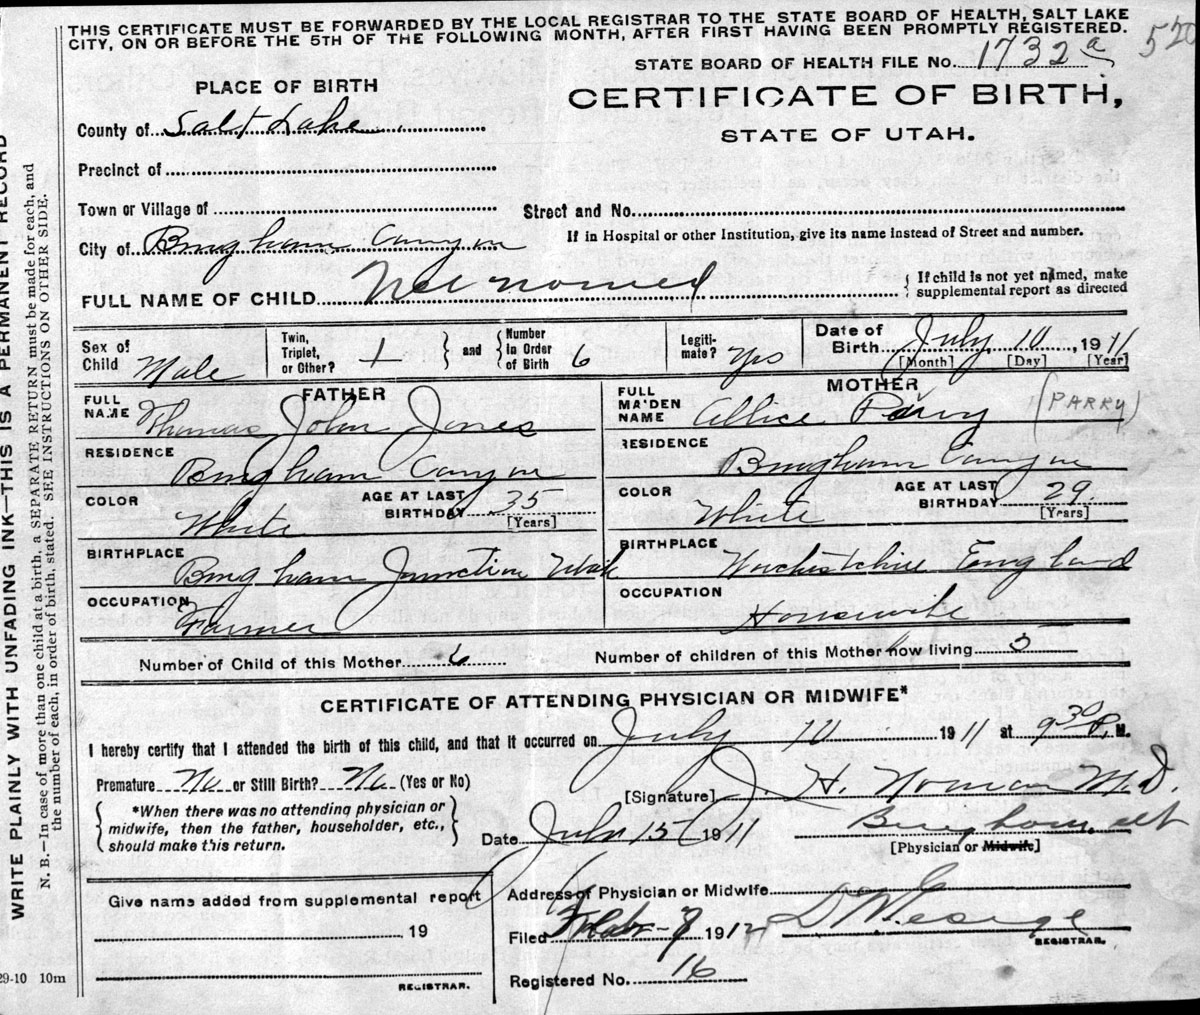 THIS CERTIFICATE MUST BE FORWARDED BY THE LOCAL REGISTRAR TO THE STATE BOARD OF HEALTH, SALT LAKE
CITY, ON OR BEFORE THE 5TH OF THE FOLLOWING MONTH, AFTER FIRST HAVING BEEN PROMPTLY REGISTERED.
520
STATE BOARD OF HEALTH FILE No. 1732 a
PLACE OF BIRTH
CERTIFICATE OF BIRTH,
STATE OF UTAH.
County of Salt Lake
Precinct of
Town or Village of
Street and No.
City of Bingham Canyon
If in Hospital or other Institution, give its name instead of Street and number.
FULL NAME OF CHILD Not named
{ If child is not yet named, make
supplemental report as directed
Sex of Child Male
Twin, Triplet, or Other? 1 } and { Number In Order of Birth 6
Legiti-mate? Yes
Date of Birth July 10 1911
[Month] [Day] [Year]
FATHER
FULL NAME Thomas John Jones
RESIDENCE Bingham Canyon
COLOR White
AGE AT LAST BIRTHDAY 35
[Years]
BIRTHPLACE Bingham Junction Utah
OCCUPATION Farmer
MOTHER
FULL MAIDEN NAME Allice Parry (PARRY)
RESIDENCE Bingham Canyon
COLOR White
AGE AT LAST BIRTHDAY 29
[Years]
BIRTHPLACE Worchestchire England
OCCUPATION Housewife
Number of Child of this Mother 6
Number of children of this Mother now living 5
CERTIFICATE OF ATTENDING PHYSICIAN OR MIDWIFE*
I hereby certify that I attended the birth of this child, and that it occurred on July 10 1911 at 9 30 P. M.
Premature No or Still Birth? No (Yes or No)
[Signature] J. H. Noman M.D.
{ *When there was no attending physician or
midwife, then the father, householder, etc.,
should make this return. }
Date July 15 1911
Bingham, Ut
[Physician or Midwife]
Give name added from supplemental report
19
REGISTRAR.
Address of Physician or Midwife
Filed 1912
REGISTRAR.
Registered No. 16
29-10 10m
WRITE PLAINLY WITH UNFADING INK—THIS IS A PERMANENT RECORD
N. B.—In case of more than one child at a birth, a SEPARATE RETURN must be made for each, and
the number of each, in order of birth, stated. SEE INSTRUCTIONS ON OTHER SIDE.